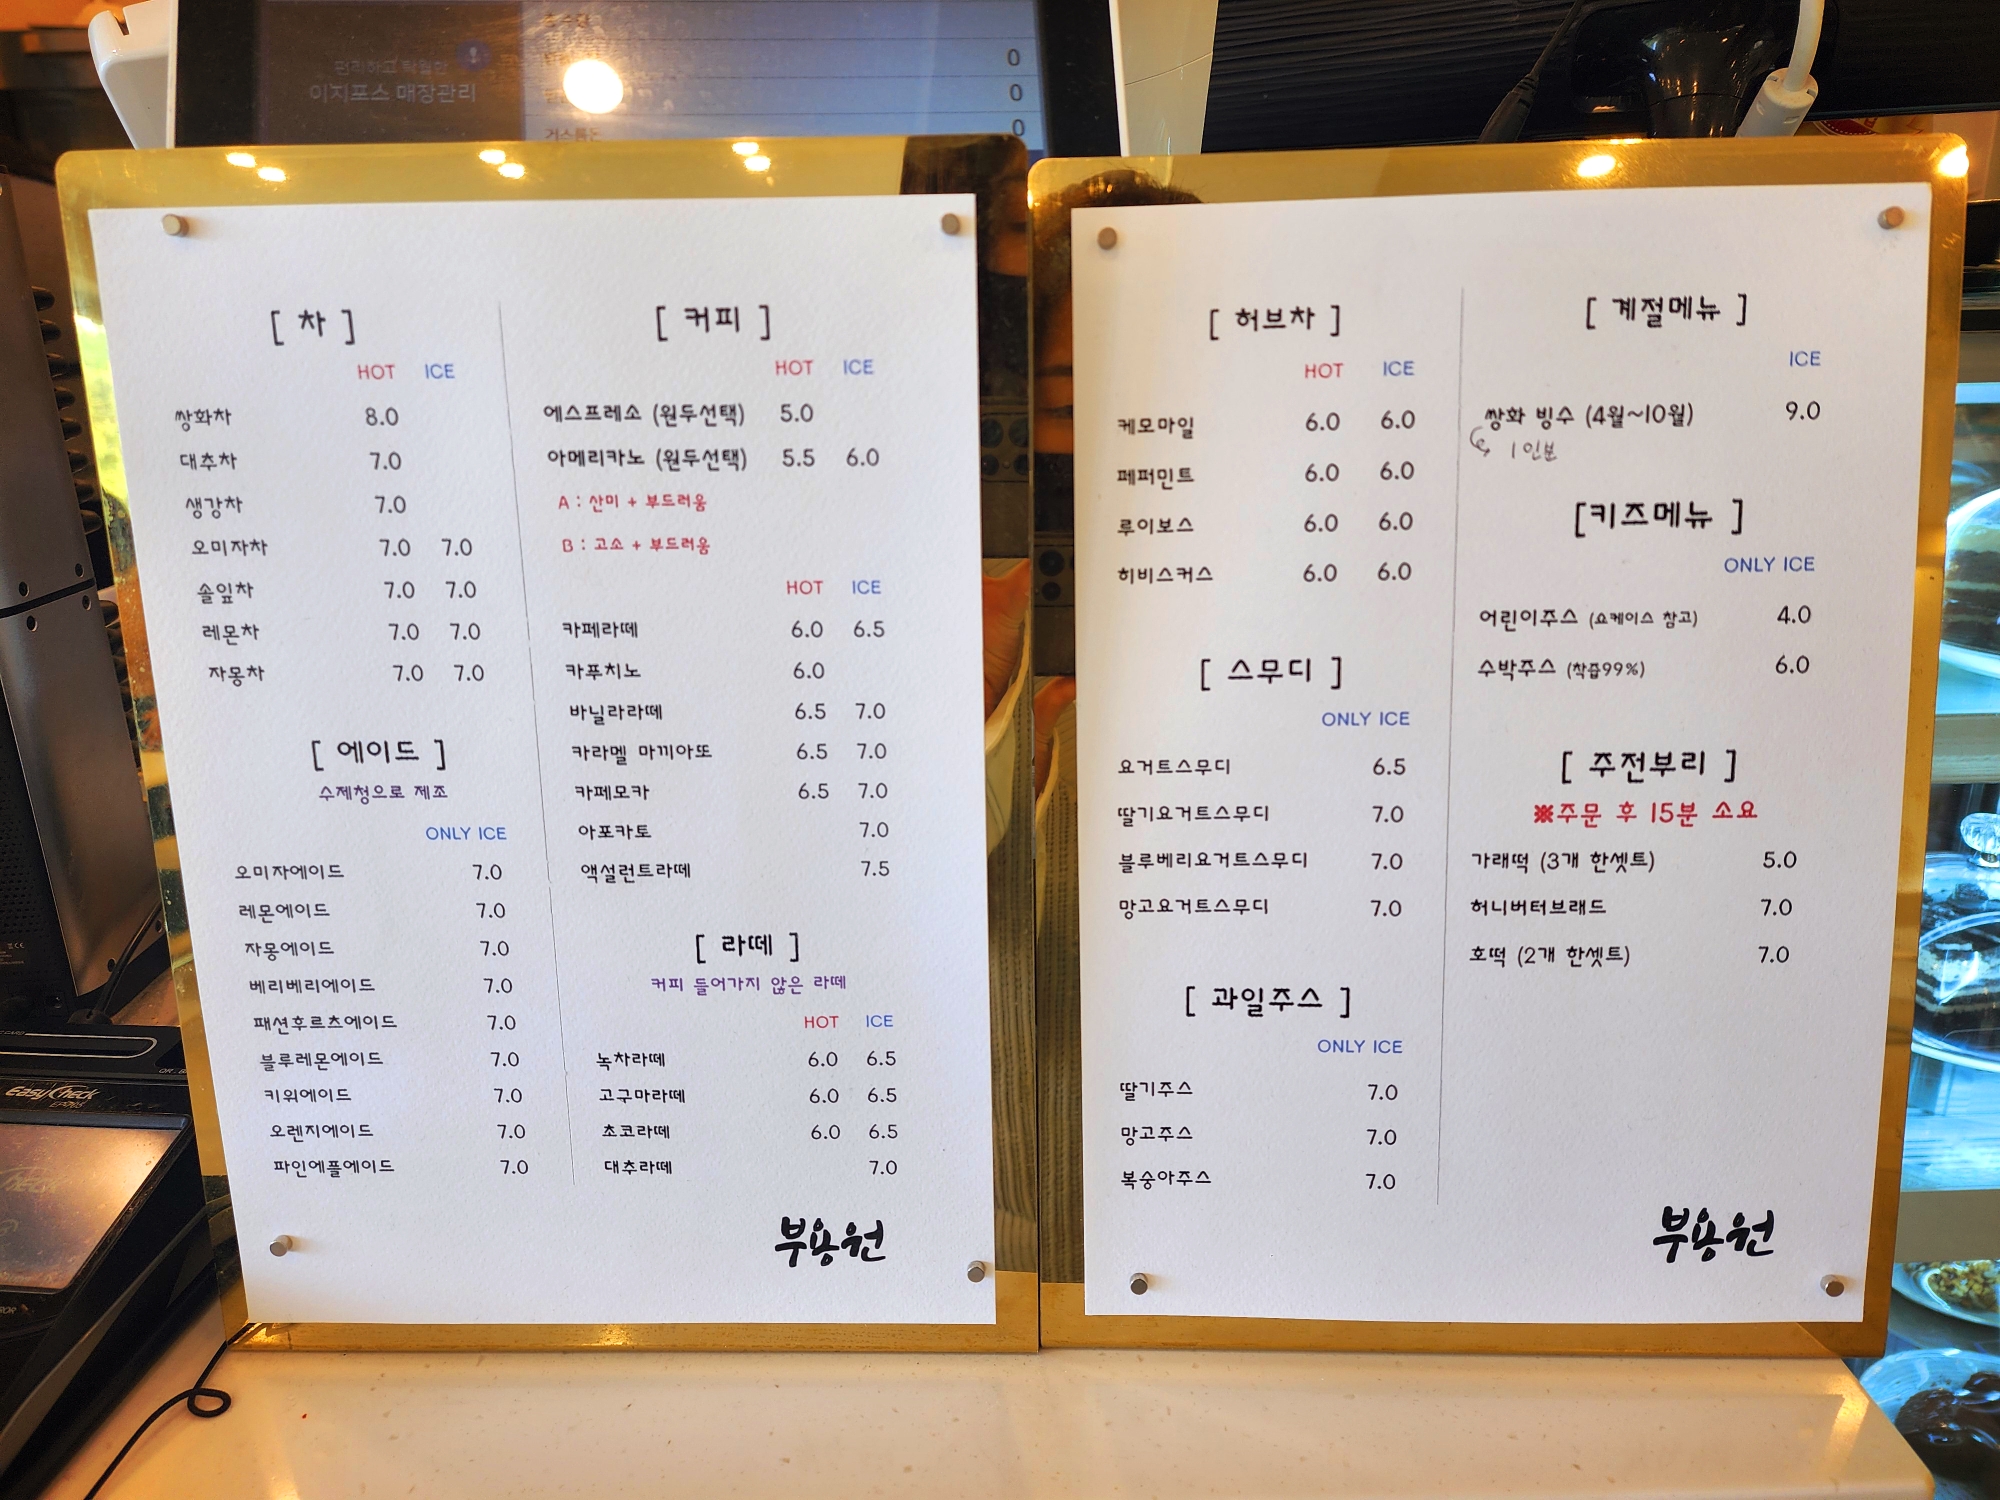 편리하고 탁월한
이지포스 매장관리
0
0
0
[ 차 ]
HOT ICE
쌍화차 8.0
대추차 7.0
생강차 7.0
오미자차 7.0 7.0
솔잎차 7.0 7.0
레몬차 7.0 7.0
자몽차 7.0 7.0
[ 에이드 ]
수제청으로 제조
ONLY ICE
오미자에이드 7.0
레몬에이드 7.0
자몽에이드 7.0
베리베리에이드 7.0
패션후르츠에이드 7.0
블루레몬에이드 7.0
키위에이드 7.0
오렌지에이드 7.0
파인에플에이드 7.0
[ 커피 ]
HOT ICE
에스프레소 (원두선택) 5.0
아메리카노 (원두선택) 5.5 6.0
A : 산미 + 부드러움
B : 고소 + 부드러움
HOT ICE
카페라떼 6.0 6.5
카푸치노 6.0
바닐라라떼 6.5 7.0
카라멜 마끼아또 6.5 7.0
카페모카 6.5 7.0
아포카토 7.0
액설런트라떼 7.5
[ 라떼 ]
커피 들어가지 않은 라떼
HOT ICE
녹차라떼 6.0 6.5
고구마라떼 6.0 6.5
초코라떼 6.0 6.5
대추라떼 7.0
부용원
[ 허브차 ]
HOT ICE
케모마일 6.0 6.0
페퍼민트 6.0 6.0
루이보스 6.0 6.0
히비스커스 6.0 6.0
[ 스무디 ]
ONLY ICE
요거트스무디 6.5
딸기요거트스무디 7.0
블루베리요거트스무디 7.0
망고요거트스무디 7.0
[ 과일주스 ]
ONLY ICE
딸기주스 7.0
망고주스 7.0
복숭아주스 7.0
[ 계절메뉴 ]
ICE
쌍화 빙수 (4월~10월) 9.0
1인분
[키즈메뉴 ]
ONLY ICE
어린이주스 (쇼케이스 참고) 4.0
수박주스 (착즙99%) 6.0
[ 주전부리 ]
※주문 후 15분 소요
가래떡 (3개 한셋트) 5.0
허니버터브래드 7.0
호떡 (2개 한셋트) 7.0
부용원
EasyCheck